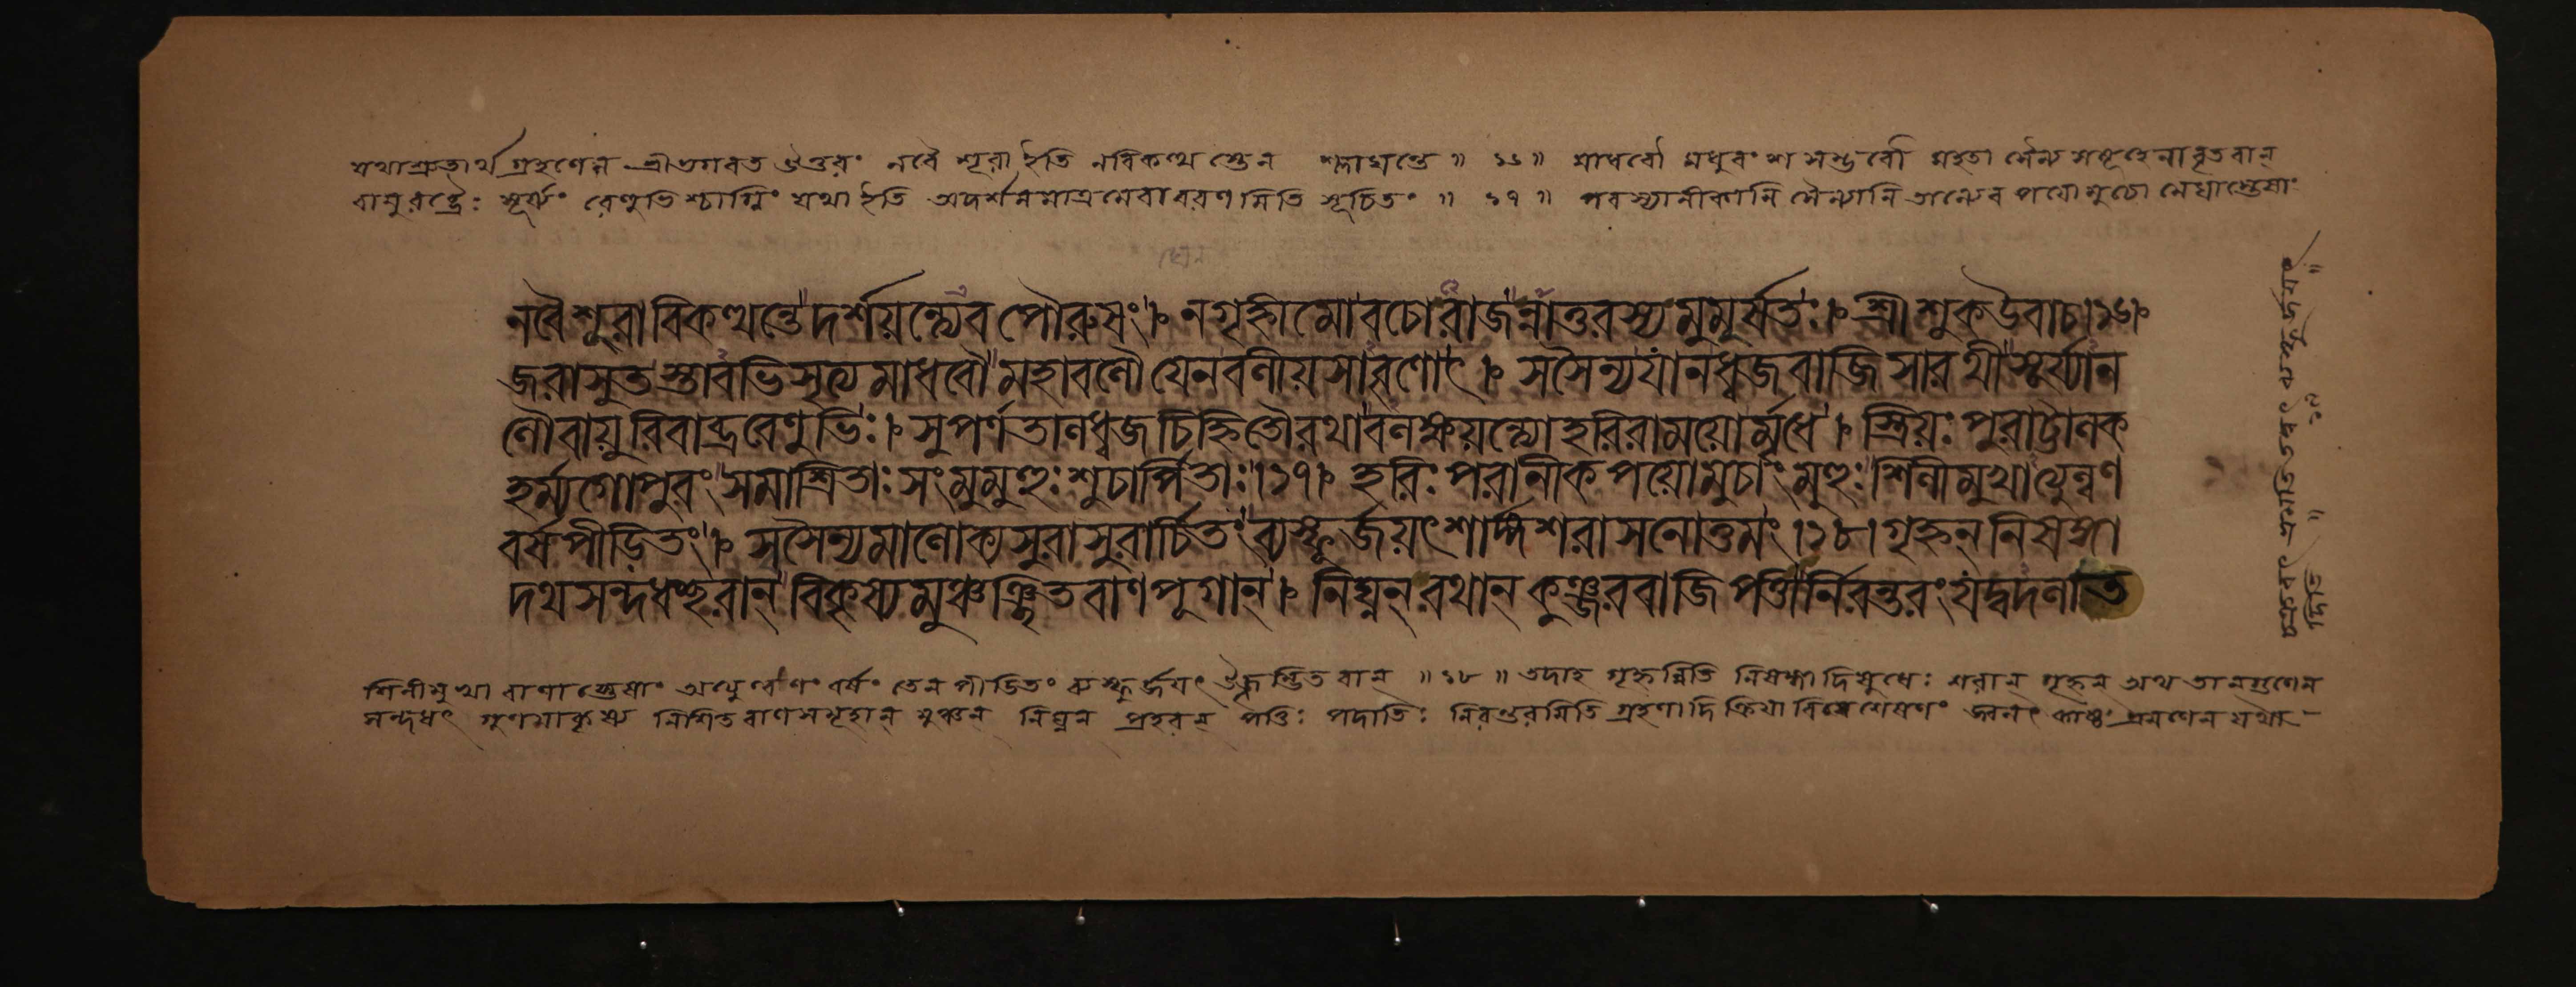 যথাশ্রুতার্থগ্রহণেন শ্রীভগবত উত্তরং নবৈ শূরা ইতি নবিকত্থন্তেন শ্লাঘন্তে ॥ ১৬ ॥ মাধবৌ মধুবংশসম্ভবৌ মহতা সৈন্যসমূহেনাবৃতবান্
বায়ুরভ্রৈঃ সূর্য্যং রেণুভিশ্চাগ্নিং যথা ইতি অদর্শনমাত্রমেবাবরণমিতি সূচিতং ॥ ১৭ ॥ পরস্যানীকানি সৈন্যানি তান্যেব পয়োমুচো মেঘাস্তেষাং
নবৈশূরাবিকত্থন্তেদর্শয়ন্ত্যেবপৌরুষং।৮ নগৃহ্নীমোবচোরাজন্নাতুরস্যমুমূর্ষতঃ।৮ শ্রীশুকউবাচ।১৬।৮
জরাসুতস্তাবভিসৃত্যমাধবৌমহাবলৌঘেনবলীয়সাবৃণোৎ।৮ সসৈন্যযানধ্বজবাজিসারথীসূর্য্যান
লৌবায়ুরিবাভ্ররেণুভিঃ।৮ সুপর্ণতালধ্বজচিহ্নিতৌরথাবলক্ষয়ন্ত্যোহরিরাময়োর্মৃধে।৮ স্ত্রিয়ঃপুরাট্টালক
হর্ম্যগোপুরংসমাশ্রিতাঃসংমুমুহুঃশুচার্পিতাঃ।১৭।৮ হরিঃপরানীকপয়োমুচাংমুহুঃশিলীমুখাত্যুল্বণ
বর্ষপীড়িতং।৮ সসৈন্যমালোক্যসুরাসুরার্চিতংব্যস্ফূর্জয়ৎশার্ঙ্গশরাসনোত্তমং।১৮।গৃহ্নন্নিষঙ্গা
দথসন্দধচ্ছরান্বিকৃষ্যমুঞ্চঞ্ছিতবাণপূগান্।৮ নিঘ্নন্রথান্কুঞ্জরবাজিপত্তীর্নিরন্তরংযদ্বদলাত
শিলীমুখা বাণাস্তেষাং অত্যুল্বণং বর্ষং তেন পীডিতং ব্যস্ফূর্জয়ৎ বান্ ॥ ১৮ ॥ তদাহ গৃহ্নন্নিতি নিষঙ্গাদিষুধেঃ শরান্ গৃহ্নন্ অথ তান্গুণেন
সন্দধৎ গুণমাকৃষ্য নিশিতবাণসমূহান্ মুঞ্চন্ নিঘ্নন্ প্রহরন্ পত্তিঃ পদাতিঃ নিরন্তরমিতি গ্রহণাদিক্রিয়াবিশেষণং জ্বলৎ কাষ্ঠং ভ্রমণেন যথা